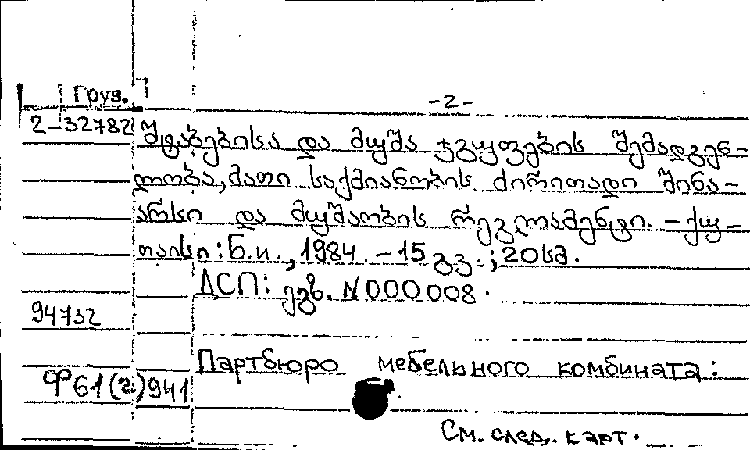 Груз.
-2-
2-32782
შტაბებისა და მუშა ჯგუფების შემადგენ-
ლობა, მათი საქმიანობის ძირითადი შინა-
არსი და მუშაობის რეგლამენტი. - ქუ-
თაისი: ნ.ი., 1984. - 15 გვ.; 20 სმ.
ДСП: ეგზ. N000008.
94732
Партбюро мебельного комбината:
Ф61(2)941
См. след. карт.